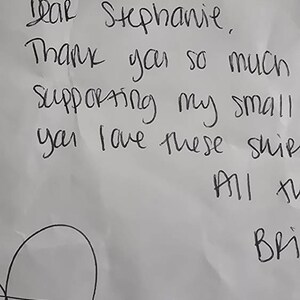 Dear Stephanie,
Thank you so much
supporting my small
you love these shir
All th
Bri